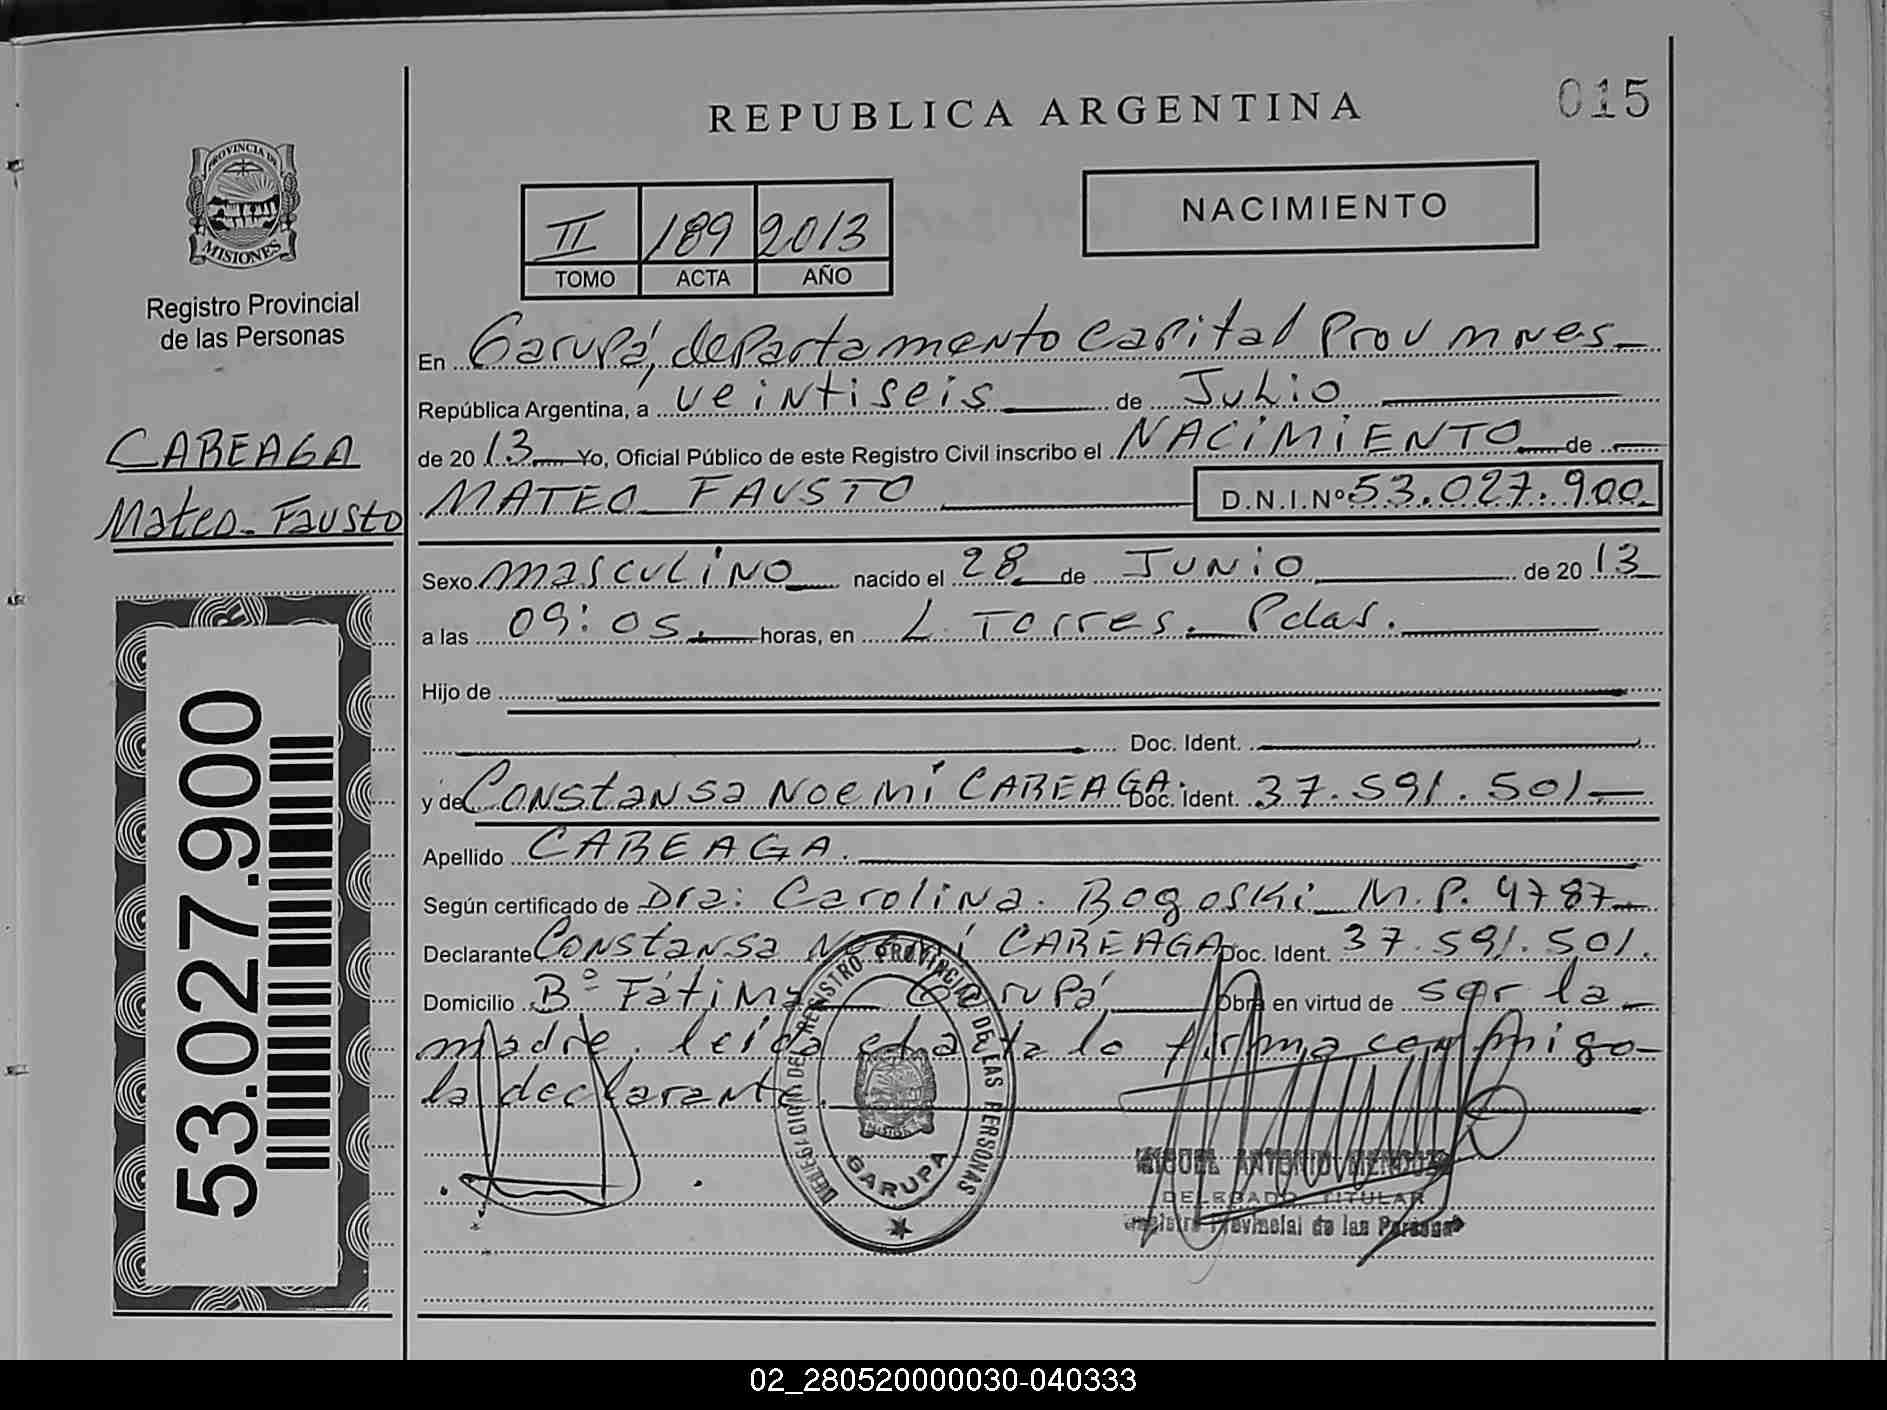 015
REPUBLICA ARGENTINA
NACIMIENTO
PROVINCIA DE
MISIONES
Registro Provincial
de las Personas
II 189 2013
TOMO ACTA AÑO
En Garupá, departamento Capital Prov mnes
República Argentina, a veintiseis de Julio
CAREAGA
Mateo Fausto
de 2013 Yo, Oficial Público de este Registro Civil inscribo el NACIMIENTO de
MATEO FAUSTO D.N.I.Nº 53.027.900
Sexo masculino nacido el 28 de Junio de 2013
a las 09:05 horas, en L. Torres. Pdas.
Hijo de
Doc. Ident.
y de Constansa Noemí CAREAGA Doc. Ident. 37.591.501
Apellido CAREAGA.
Según certificado de Dra: Carolina. Bogoski M.P. 4787
Declarante Constansa Noemí CAREAGA Doc. Ident. 37.591.501.
Domicilio Bº Fátima Garupá Obra en virtud de ser la
madre. leída el acta lo firma conmigo
la declarante.
53.027.900
DELEGACION DEL REGISTRO PROVINCIAL DE LAS PERSONAS
GARUPA
MIGUEL ANTONIO
DELEGADO TITULAR
Registro Provincial de las Personas
02_280520000030-040333